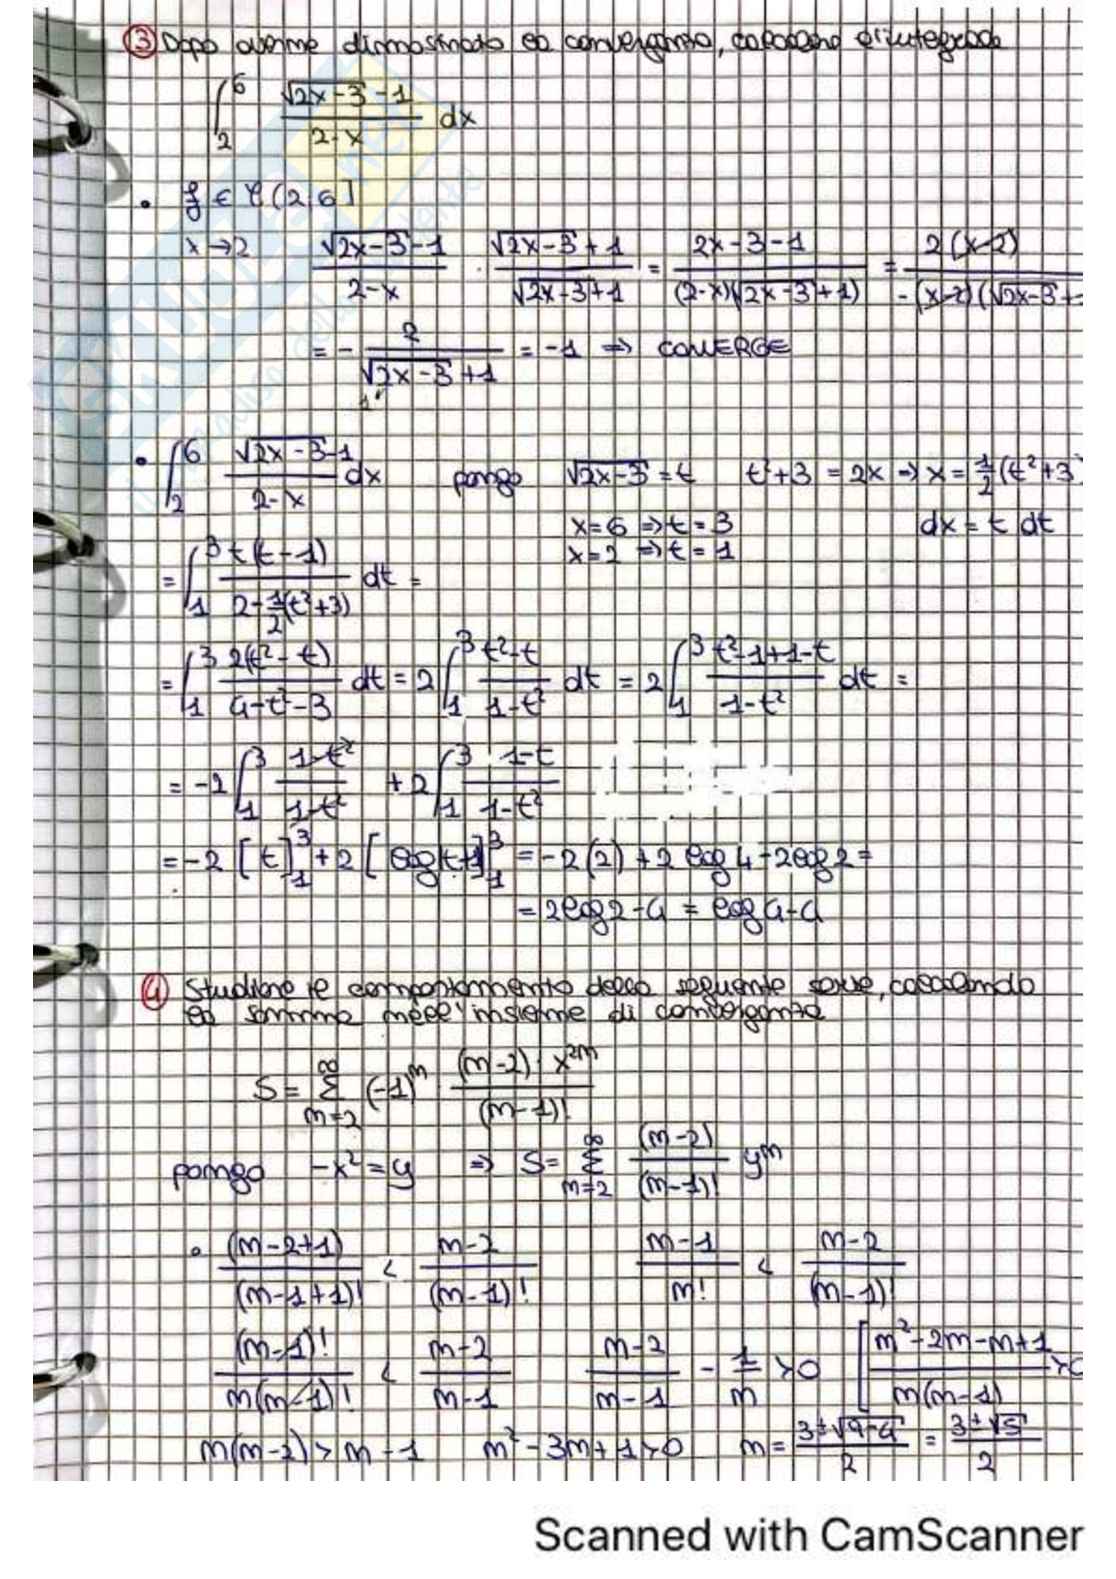 ③ Dopo averne dimostrato la convergenza, calcolare l'integrale
∫₂⁶ (√(2x-3) - 1)/(2-x) dx
• f ∈ C(2,6]
x→2 (√(2x-3) - 1)/(2-x) · (√(2x-3) + 1)/(√(2x-3) + 1) = (2x-3-1)/((2-x)(√(2x-3)+1)) = 2(x-2)/(-(x-2)(√(2x-3)+
= - 2/(√(2x-3)+1) = -1 ⇒ CONVERGE
1
• ∫₂⁶ (√(2x-3) - 1)/(2-x) dx pongo √(2x-3) = t t²+3 = 2x → x = ½(t²+3)
x=6 ⇒ t=3 dx = t dt
x=2 ⇒ t=1
= ∫₁³ t(t-1)/(2-½(t²+3)) dt =
= ∫₁³ 2(t²-t)/(4-t²-3) dt = 2∫₁³ (t²-t)/(1-t²) dt = 2∫₁³ (t²-1+1-t)/(1-t²) dt =
= -2∫₁³ (1-t²)/(1-t²) + 2∫₁³ (1-t)/(1-t²)
= -2[t]₁³ + 2[log|t+1|]₁³ = -2(2) + 2log4 - 2log2 =
= 2log2-4 = log4-4
④ Studiare il comportamento della seguente serie, calcolando
la somma nell'insieme di convergenza
S = Σ_{n=2}^{∞} (-1)ⁿ (n-2)·x²ⁿ/(n-1)!
pongo -x² = y ⇒ S = Σ_{n=2}^{∞} (n-2)/(n-1)! yⁿ
• (n-2+1)/(n-1+1)! < (n-2)/(n-1)! (n-1)/n! < (n-2)/(n-1)!
(n-1)!/(n(n-1)!) < (n-2)/(n-1) (n-2)/(n-1) - 1/n > 0 [(n²-2n-n+1)/(n(n-1)) >0
n(n-2) > n-1 n²-3n+1>0 n = (3±√(9-4))/2 = (3±√5)/2
Scanned with CamScanner